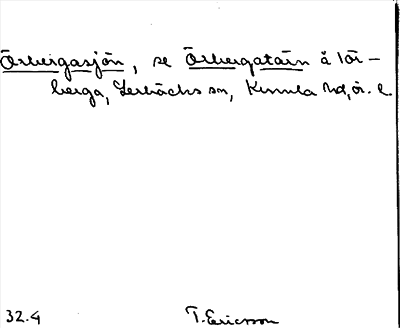 Örbergasjön, se Örbergatärn å lör-
berga, Lerbäcks sn, Kumla hd, ör. l.
32.4 T. Ericsson